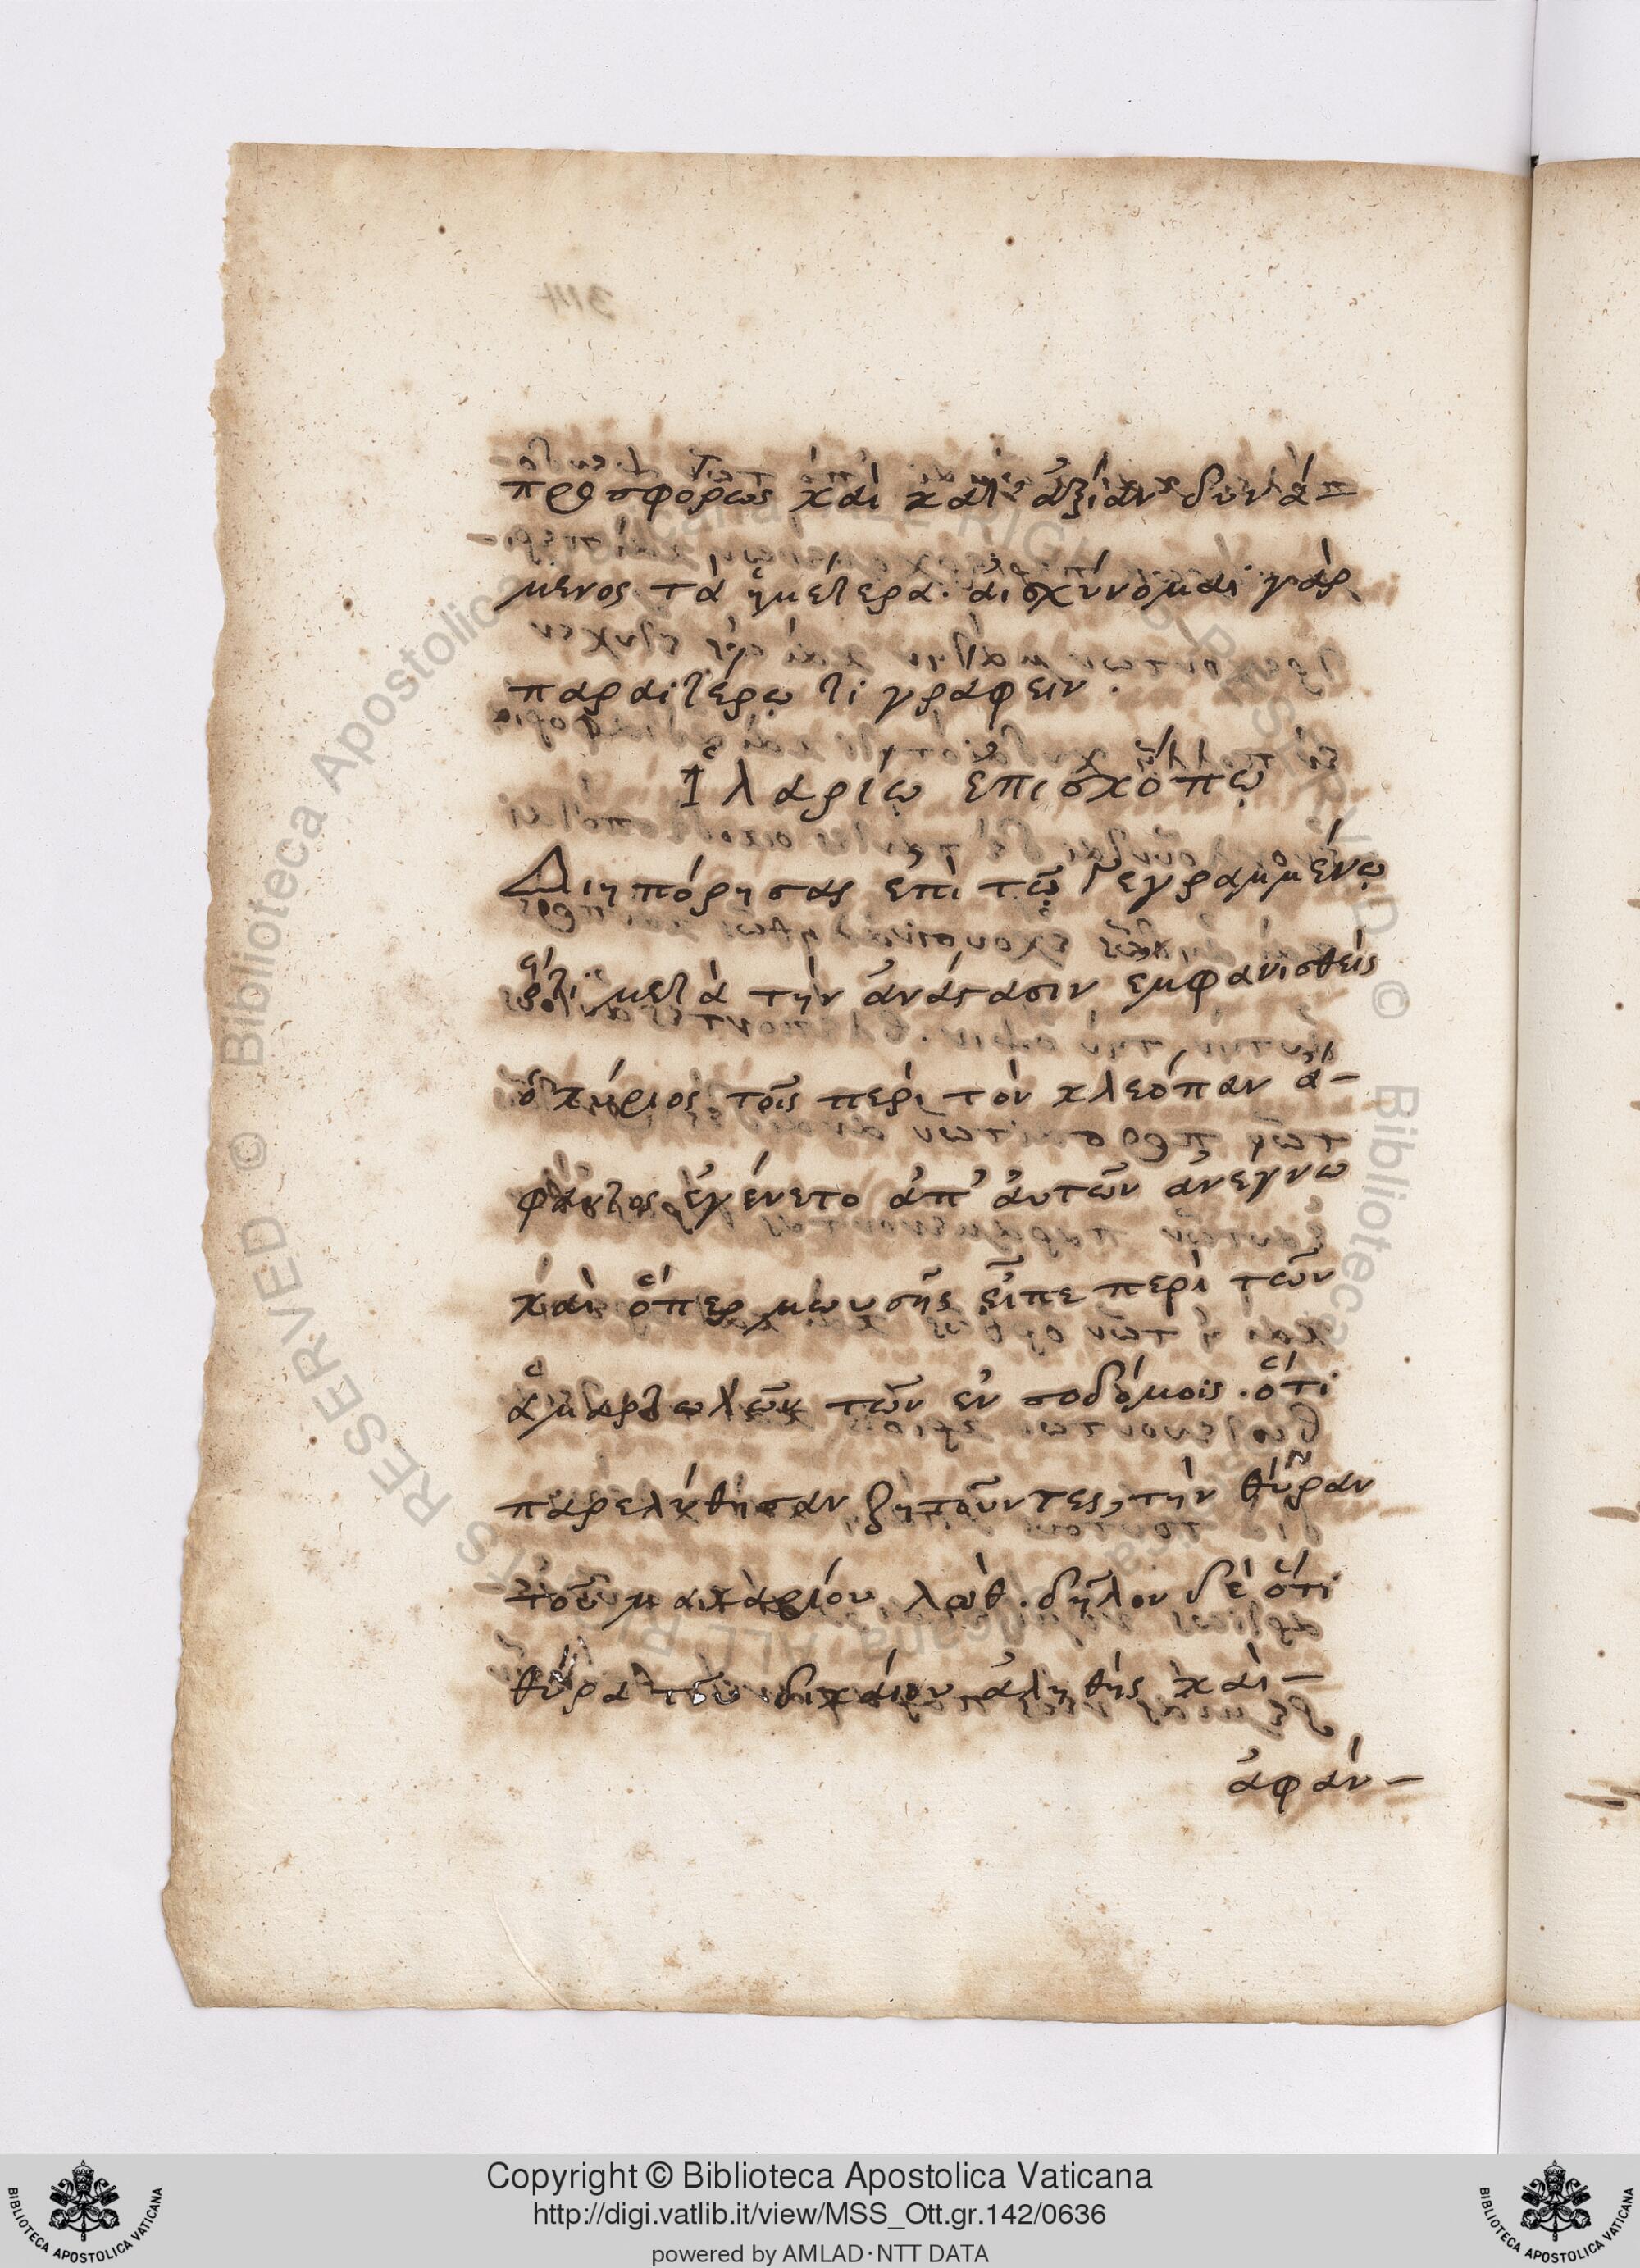 προσφόρως καὶ κατ' ἀξίαν δυνά-
μενος τὰ ἡμέτερα· ἀισχύνομαι γὰρ
παραιτέρω τὶ γράφειν.
Ἱλαρίῳ ἐπισκόπῳ
Διηπόρησας ἐπὶ τῷ Γεγραμμένῳ
ὅτι μετὰ τὴν ἀνάστασιν ἐμφανισθεὶς
ὁ κύριος τοῖς περὶ τὸν κλεόπαν ἄ-
φαντος ἐγένετο ἀπ' ἀυτῶν ἀνέγνω
καὶ ὅπερ μωυσῆς εἶπε περὶ τῶν
ἁμαρτωλῶν τῶν ἐν σοδόμοις. ὅτι
παρελύθησαν ζητοῦντες, τὴν θύραν
τοῦ μακαρίου λώθ. δῆλον δὲ ὅτι
θύρα τοῦ δικάιου ἀληθὴς καὶ-
ἀφάν-
Copyright © Biblioteca Apostolica Vaticana
http://digi.vatlib.it/view/MSS_Ott.gr.142/0636
powered by AMLAD·NTT DATA
BIBLIOTECA APOSTOLICA VATICANA
BIBLIOTECA APOSTOLICA VATICANA